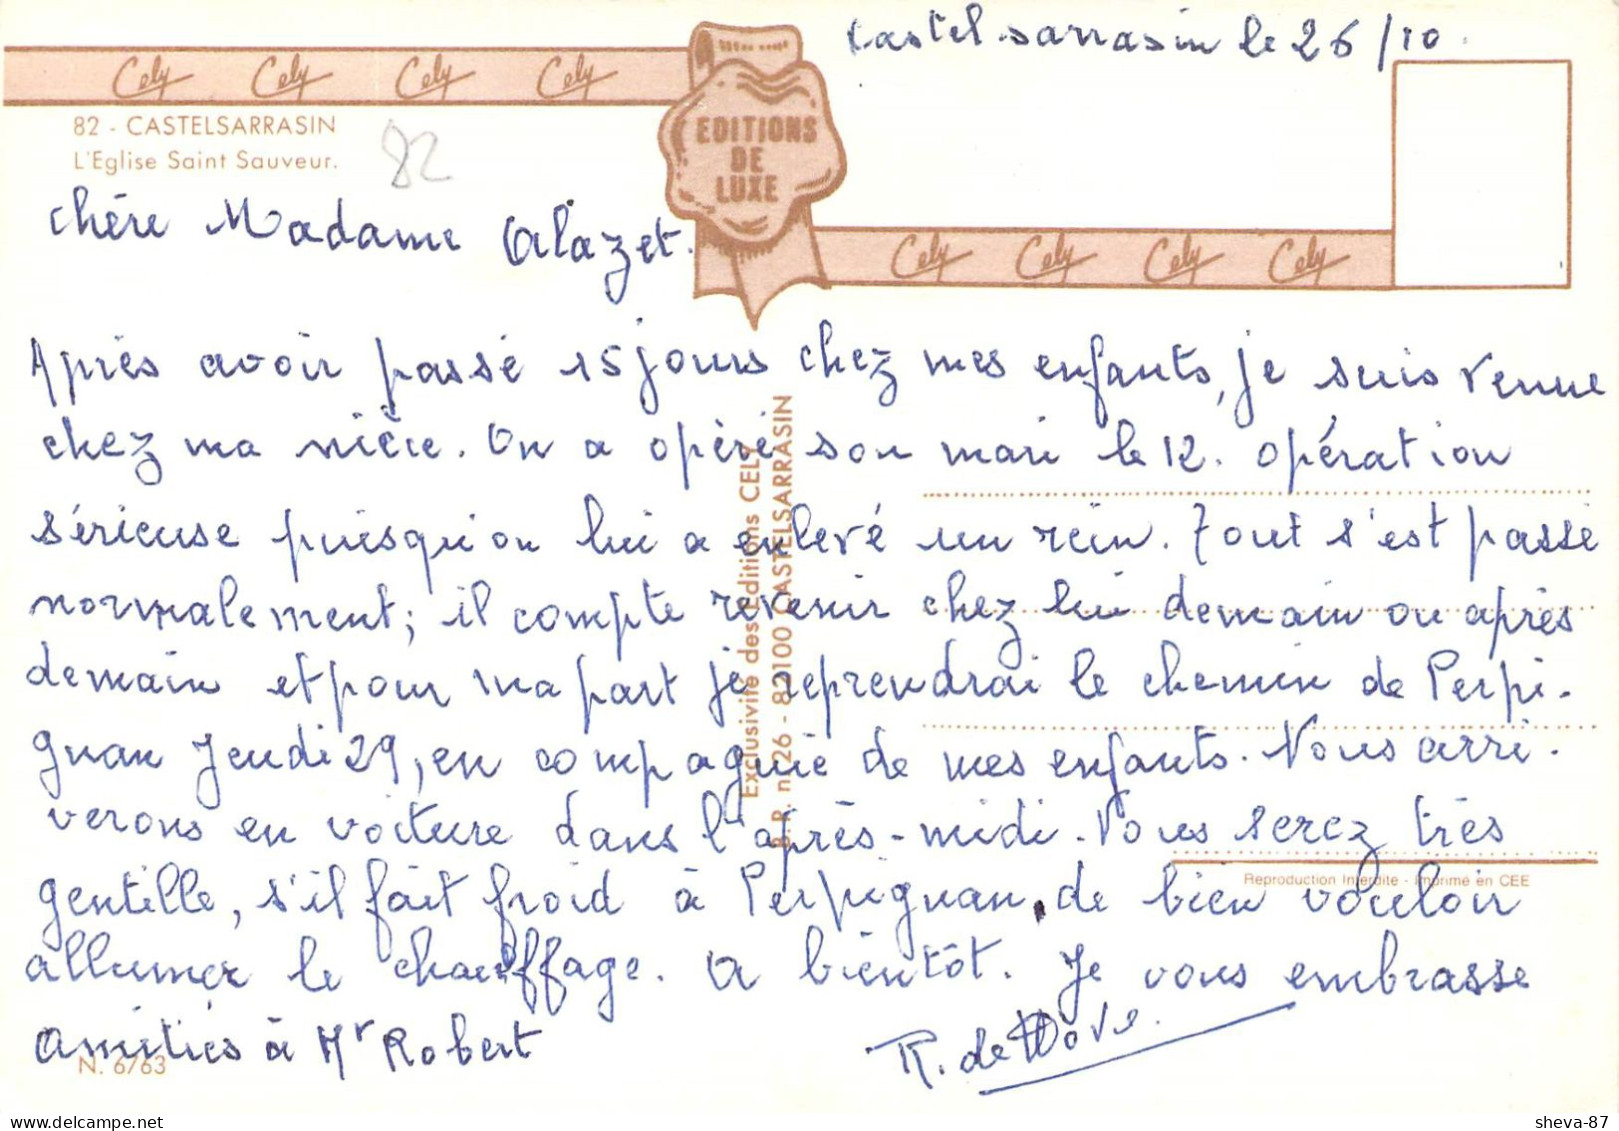 Castelsarrasin le 26/10.
Cely Cely Cely Cely
82 - CASTELSARRASIN
L'Eglise Saint Sauveur.
82
EDITIONS
DE
LUXE
Cely Cely Cely Cely
Chère Madame Alazet.
Après avoir passé 15 jours chez mes enfants, je suis venue
chez ma nièce. On a opéré son mari le 12. Opération
sérieuse puisqu'on lui a enlevé un rein. Tout s'est passé
normalement; il compte revenir chez lui demain ou après
demain et pour ma part je reprendrai le chemin de Perpi-
gnan Jeudi 29, en compagnie de mes enfants. Nous arri-
verons en voiture dans l'après-midi. Vous serez très
gentille, s'il fait froid à Perpignan, de bien vouloir
allumer le chauffage. A bientôt. Je vous embrasse
Amitiés à Mr Robert
R. de
Exclusivité des Editions CELY
B.P. n° 26 - 82100 CASTELSARRASIN
Reproduction Interdite - Imprimé en CEE
N. 6763
sheva-87